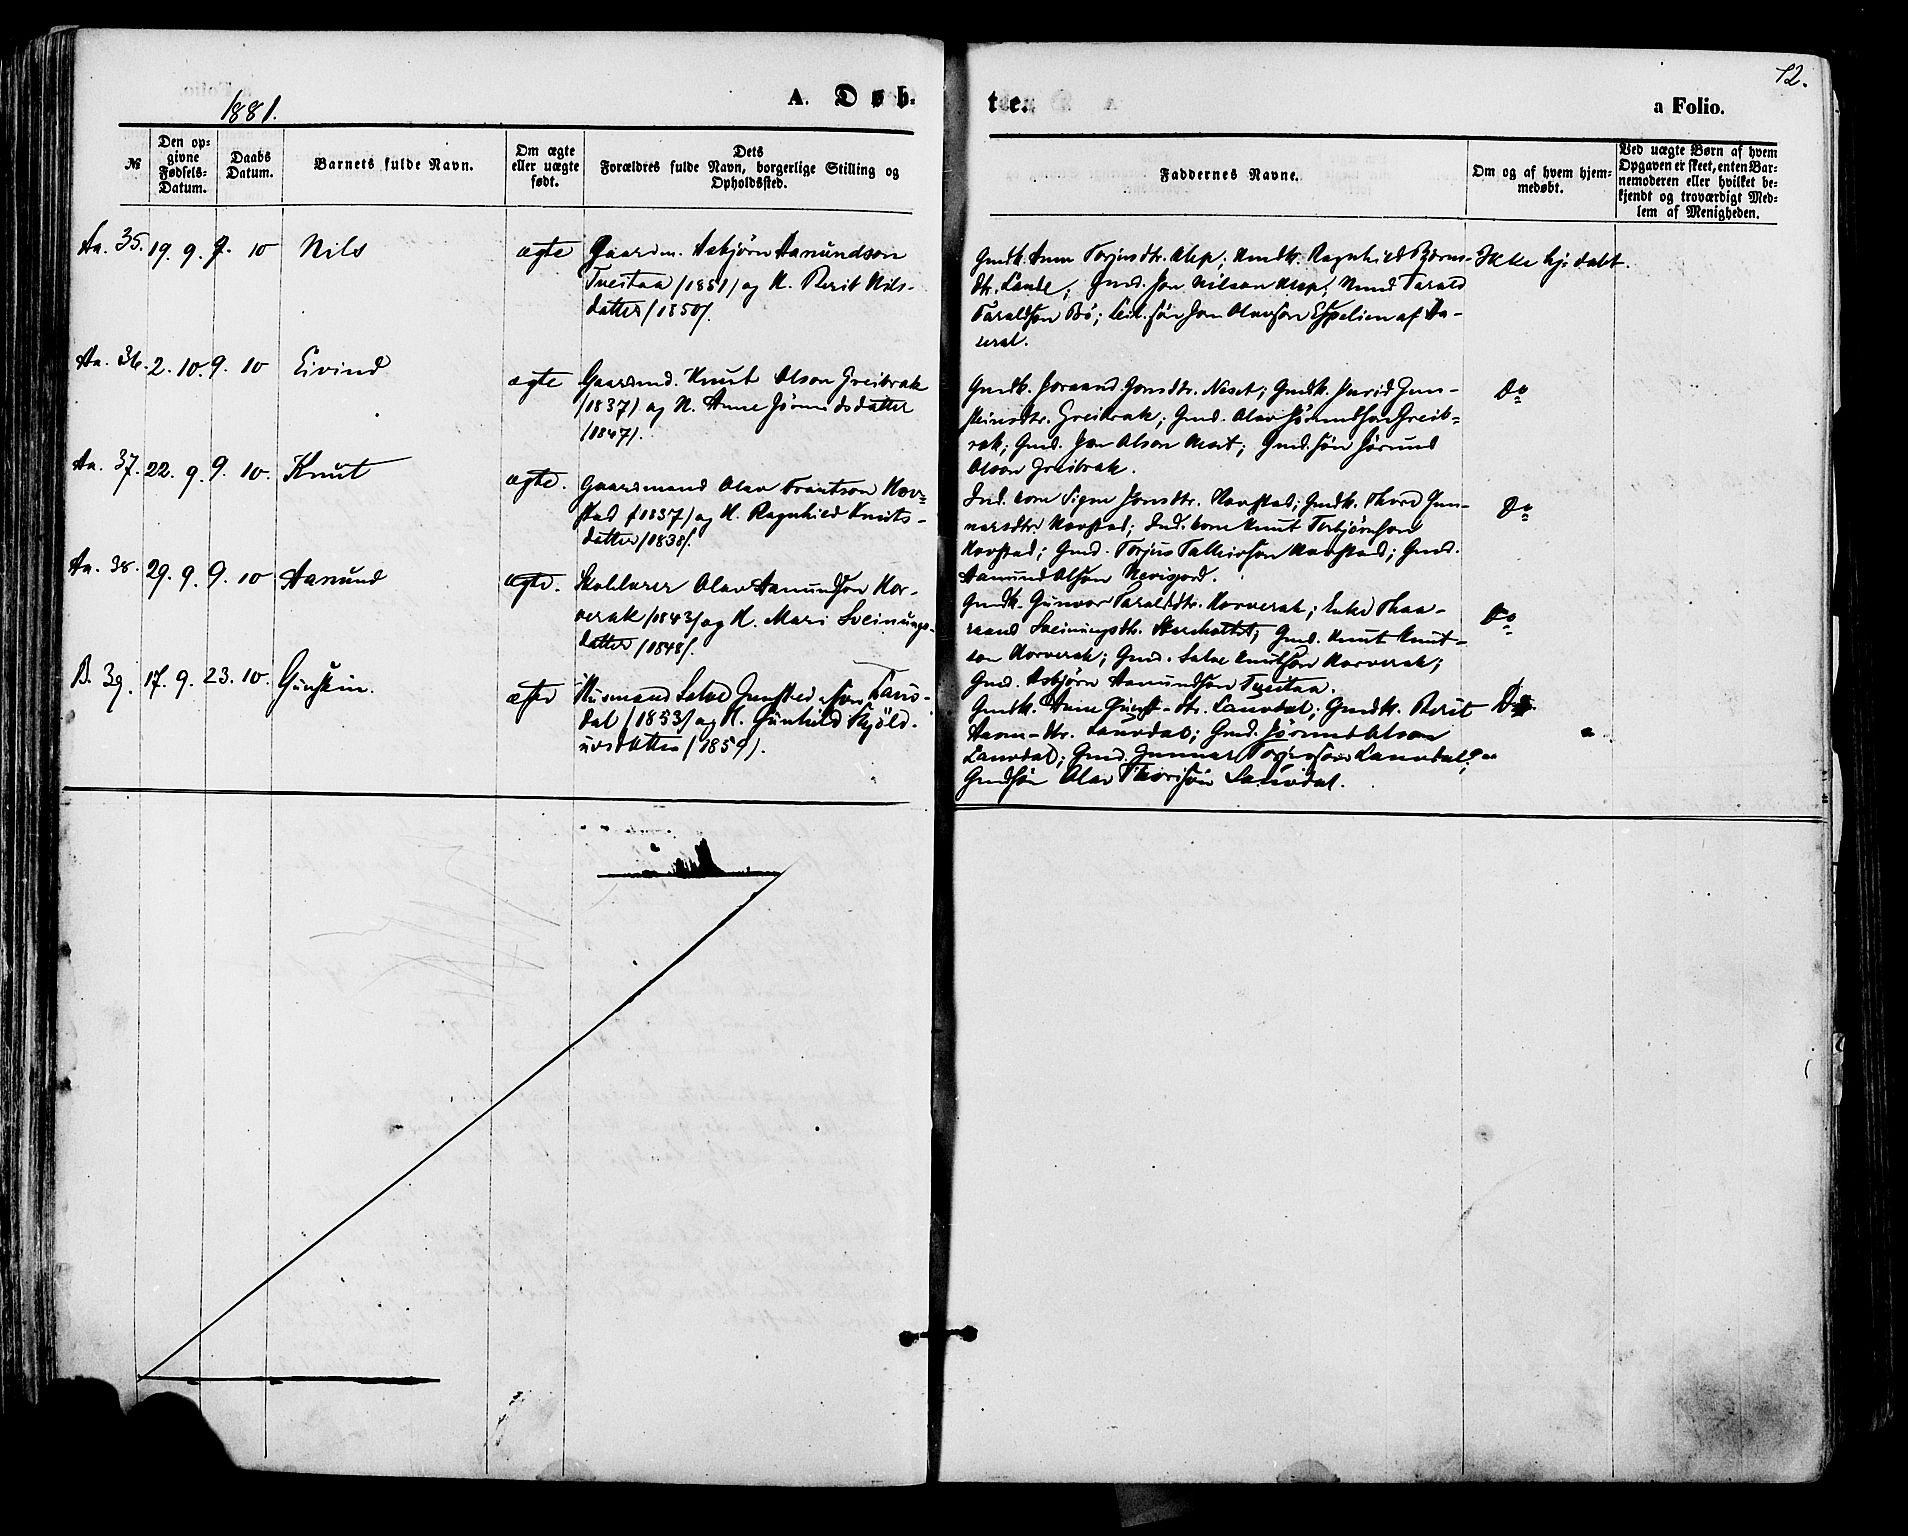 1881.
A. Døb-
te.
a Folio.
12.
№
Den op-
givne
Fødsels-
Datum.
Daabs
Datum.
Barnets fulde Navn.
Om ægte
eller uægte
født.
Dets
Forældres fulde Navn, borgerlige Stilling og
Opholdssted.
Faddernes Navne.
Om og af hvem hjem-
medøbt.
Ved uægte Børn af hvem
Opgaven er skeet, enten Bar-
nemoderen eller hvilket be-
kjendt og troværdigt Med-
lem af Menigheden.
Aa. 35. 19. 9. 9. 10 Nils ægte
Gaardm. Asbjørn Aanundson
Tveitaa (1851) og K. Berit Nils-
datter (1850).
Torjusdtr. Ragnhild Bjørns-
dtr. Lande; Gmd. Jon Nilson Tarald
Taraldson Bö; Jon Olavson Espelien af Aa-
seral.
Ikke hj. døbt.
Aa. 36. 2. 10. 9. 10 Eivind ægte
Gaardmd. Knut Olson Greibrok
(1837) og K. Anne Jörundsdatter
(1847).
Gmdk. Joraand Jonsdtr. Neset; Gmdk. Gun-
steinsdtr. Greibrok; Gmd. Olav Jörundson Greib-
rok; Gmd. Jon Olson Neset; Gmd.sön Jörund
Olson Greibrok.
Do
Aa. 37. 22. 9. 9. 10. Knut ægte.
Gaardmand Olav Hov-
stad (1837) og K. Ragnhild Knuts-
datter (1838).
Ind. kone Signe Jonsdtr. Hovstad; Gmdk. Thore Gun-
narsdtr. Hovstad; Ind. kone Knut Torbjörnson
Hovstad; Gmd. Torjus Talleivson Hovstad; Gmd.
Aanund Olson
Do
Aa. 38. 29. 9. 9. 10 Aanund ægte.
Skolelærer Olav Aanundson Hor-
verak (1843) og K. Mari Sveinungs-
datter (1848).
Gmdk. Gunvor Taraldsdtr. Horverak; Enke Thaa-
raand Sveinungsdtr. Gmd. Knut Knut-
son Horverak; Gmd. Salve Knutson Horverak;
Gmd. Asbjörn Aanundson Tveitaa.
Do
B. 39. 17. 9. 23. 10. Gunstein. ægte
Husmand Salve Gunsteinson Lauv-
dal (1853) og K. Gunhild Skjöld-
ulvsdatter (1859).
Gmdk. Anne dtr. Lauvdal; Gmdk. Berit
dtr. Lauvdal; Gmd. Jörund Olson
Lauvdal; Gmd. Gunnar Torjusson Lauvdal;
Gmdsön Olav Thorison Lauvdal.
Do